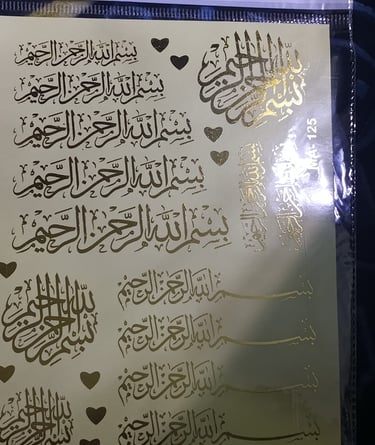 بِسْمِ اللهِ الرَّحْمٰنِ الرَّحِيْمِ
بِسْمِ اللهِ الرَّحْمٰنِ الرَّحِيْمِ
بِسْمِ اللهِ الرَّحْمٰنِ الرَّحِيْمِ
بِسْمِ اللهِ الرَّحْمٰنِ الرَّحِيْمِ
بِسْمِ اللهِ الرَّحْمٰنِ الرَّحِيْمِ
بِسْمِ اللهِ الرَّحْمٰنِ الرَّحِيْمِ
بِسْمِ اللهِ الرَّحْمٰنِ الرَّحِيْمِ
بِسْمِ اللهِ الرَّحْمٰنِ الرَّحِيْمِ
بِسْمِ اللهِ الرَّحْمٰنِ الرَّحِيْمِ
بِسْمِ اللهِ الرَّحْمٰنِ الرَّحِيْمِ
بِسْمِ اللهِ الرَّحْمٰنِ الرَّحِيْمِ
بِسْمِ اللهِ الرَّحْمٰنِ الرَّحِيْمِ
بِسْمِ اللهِ الرَّحْمٰنِ الرَّحِيْمِ
بِسْمِ اللهِ الرَّحْمٰنِ الرَّحِيْمِ
125